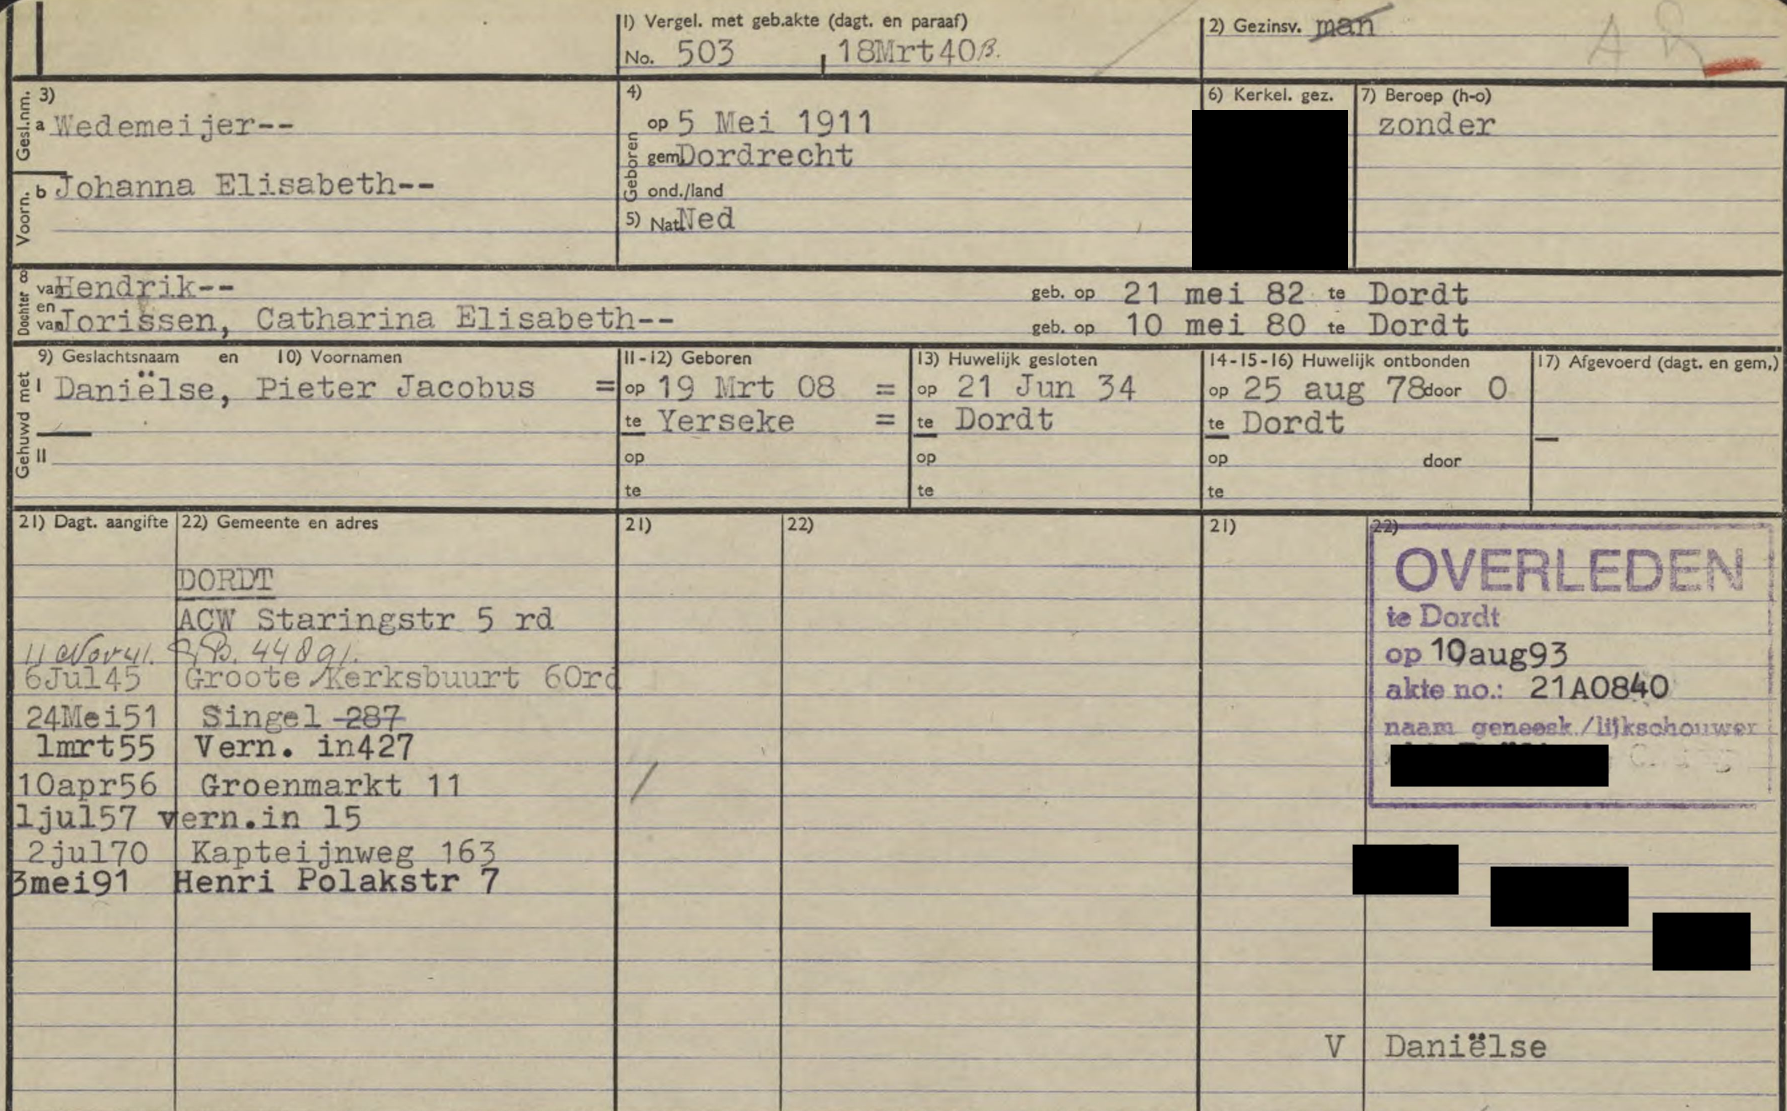 1) Vergel. met geb.akte (dagt. en paraaf)
No. 503 , 18Mrt40
2) Gezinsv. man
3)
Gesl.nm. a Wedemeijer--
Voorn. b Johanna Elisabeth--
4)
Geboren
op 5 Mei 1911
gem Dordrecht
ond./land
5) Nat. Ned
6) Kerkel. gez.
7) Beroep (h-o)
zonder
8
Dochter van Hendrik-- geb. op 21 mei 82 te Dordt
en van Jorissen, Catharina Elisabeth-- geb. op 10 mei 80 te Dordt
Gehuwd met
9) Geslachtsnaam en 10) Voornamen
I Daniëlse, Pieter Jacobus =
II
11-12) Geboren
op 19 Mrt 08 =
te Yerseke =
op
te
13) Huwelijk gesloten
op 21 Jun 34
te Dordt
op
te
14-15-16) Huwelijk ontbonden
op 25 aug 78 door O
te Dordt
op door
te
17) Afgevoerd (dagt. en gem.)
21) Dagt. aangifte 22) Gemeente en adres
DORDT
ACW Staringstr 5 rd
11 Nov 41. P.B. 44891.
6Jul45 Groote Kerksbuurt 60rd
24Mei51 Singel 287
1mrt55 Vern. in427
10apr56 Groenmarkt 11
1jul57 vern.in 15
2jul70 Kapteijnweg 163
3mei91 Henri Polakstr 7
21) 22)
21) 22)
OVERLEDEN
te Dordt
op 10aug93
akte no.: 21A0840
naam geneesk./lijkschouwer
V Daniëlse